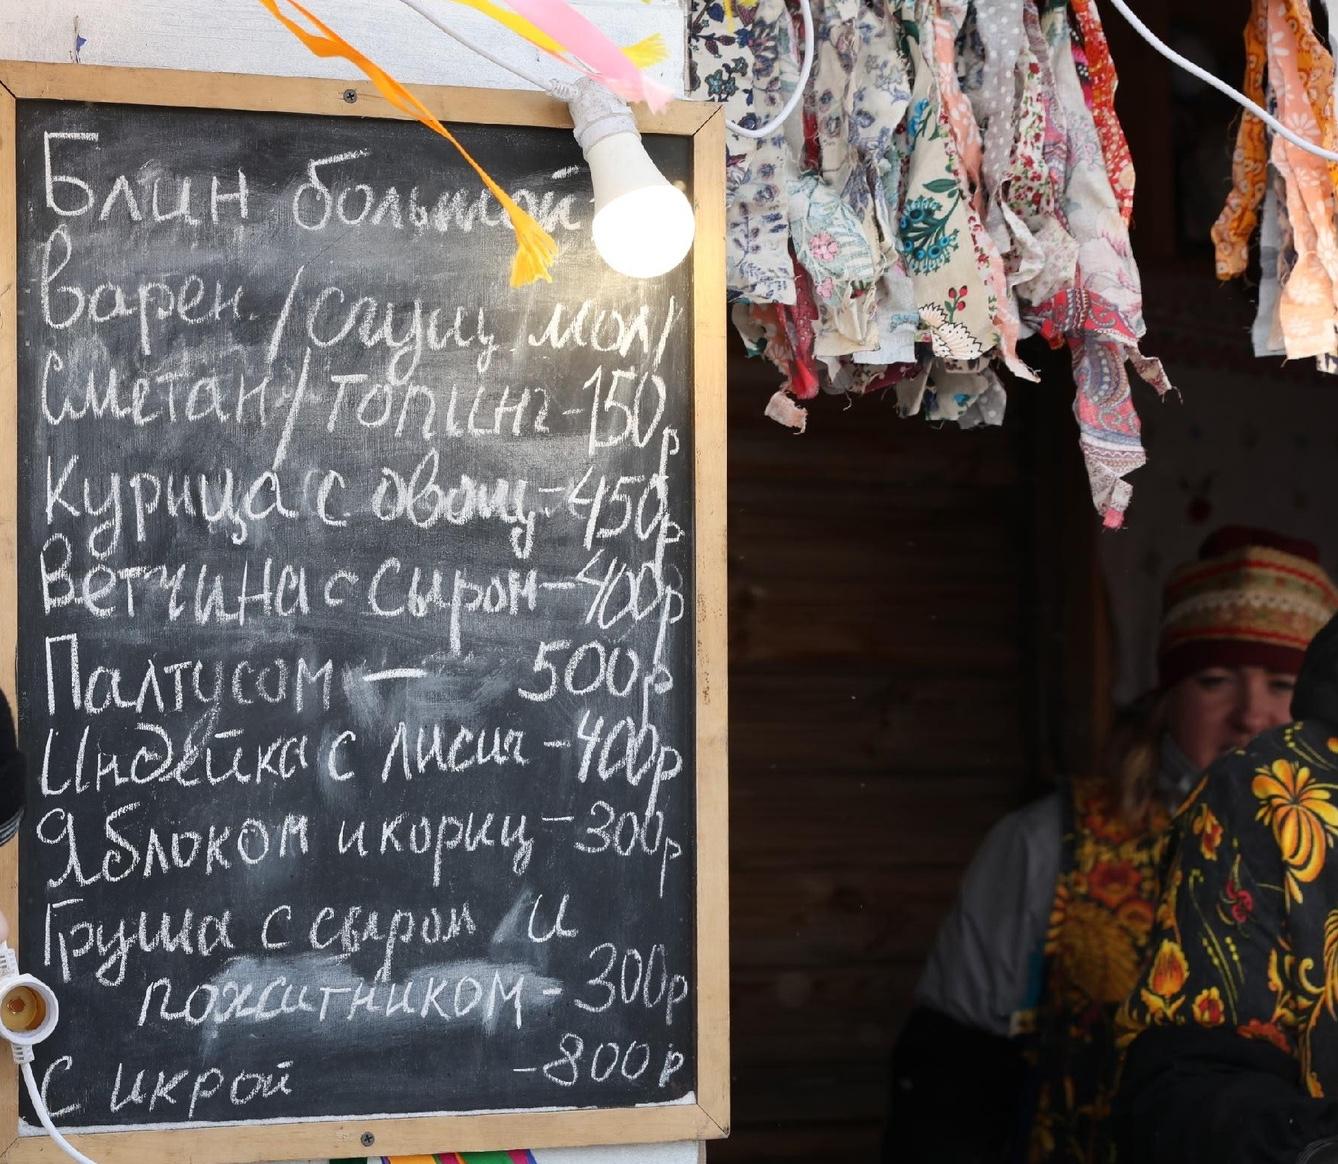 Блин большой
варен./сгущ мол/
Сметан/топинг-150р
Курица с овощ-450р
Ветчина с Сыром-400р
Палтусом - 500р
Индейка с лисич-400р
Яблоком и кориц-300р
Груша с сыром и
пожитником-300р
С икрой -800р